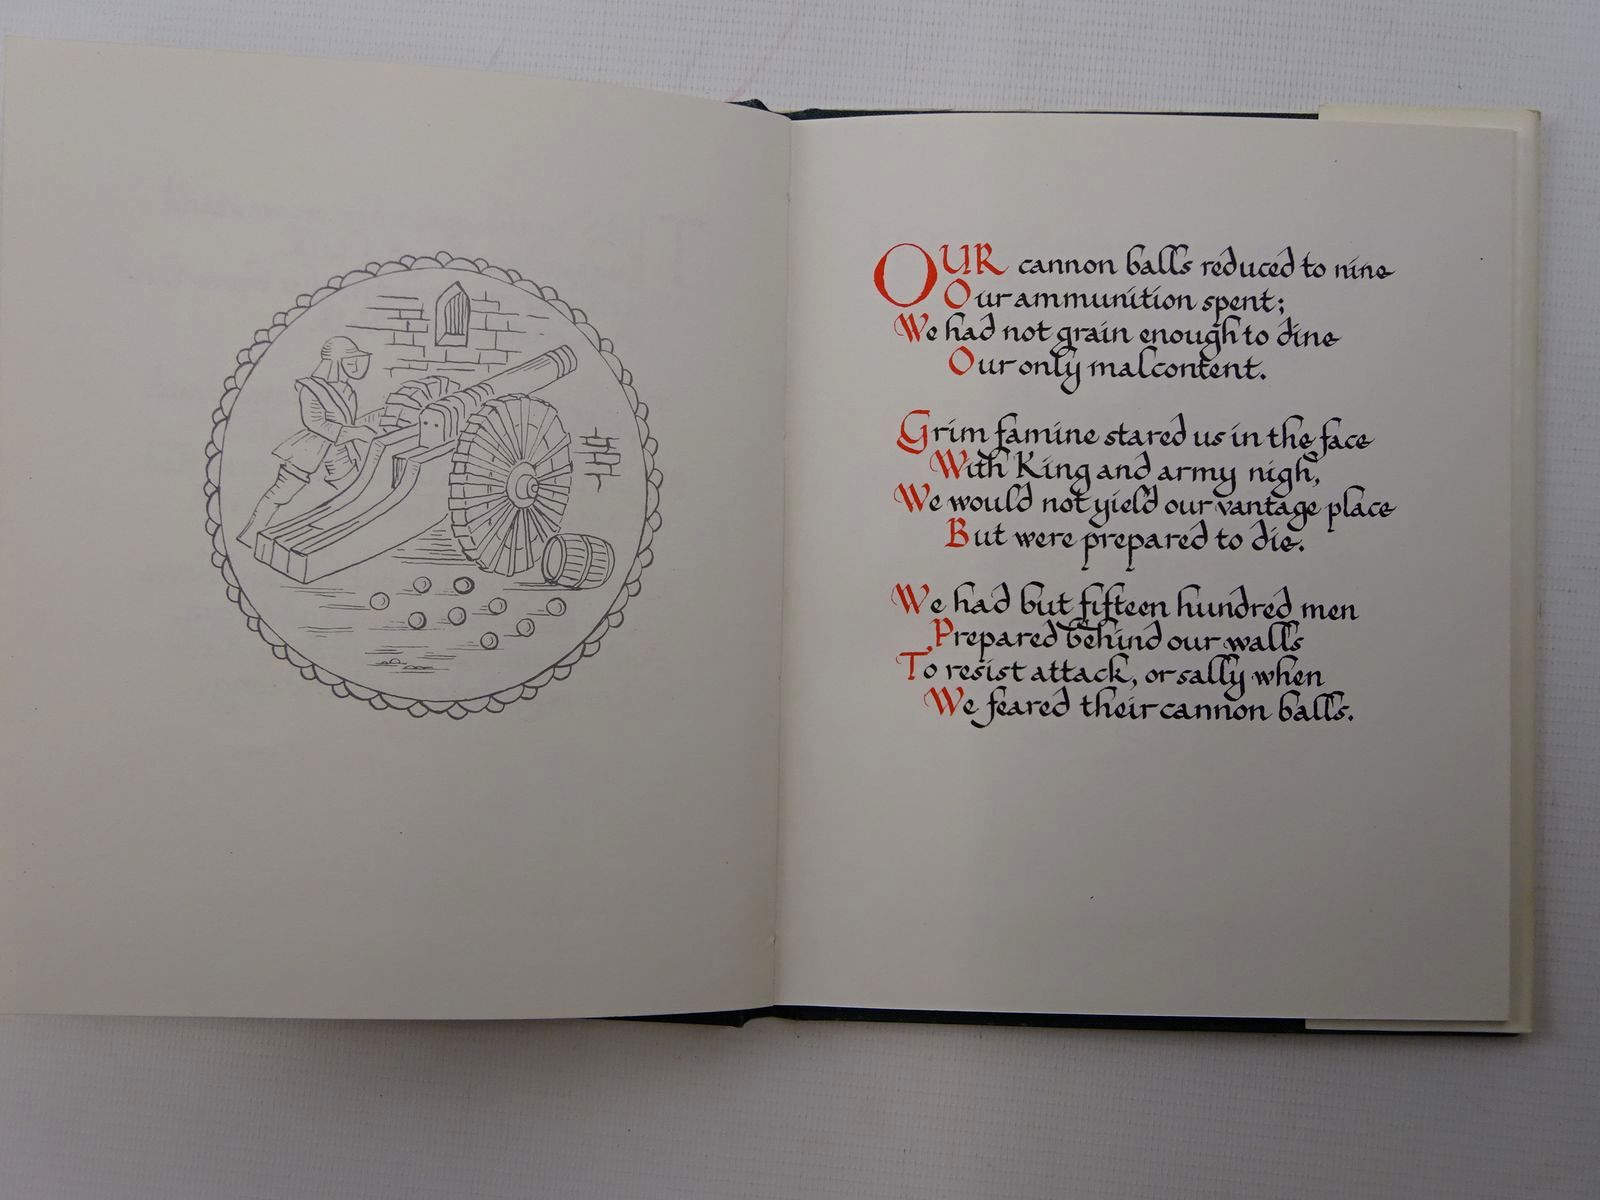 OUR cannon balls reduced to nine
Our ammunition spent;
We had not grain enough to dine
Our only malcontent.
Grim famine stared us in the face
With King and army nigh,
We would not yield our vantage place
But were prepared to die.
We had but fifteen hundred men
Prepared behind our walls
To resist attack, or sally when
We feared their cannon balls.